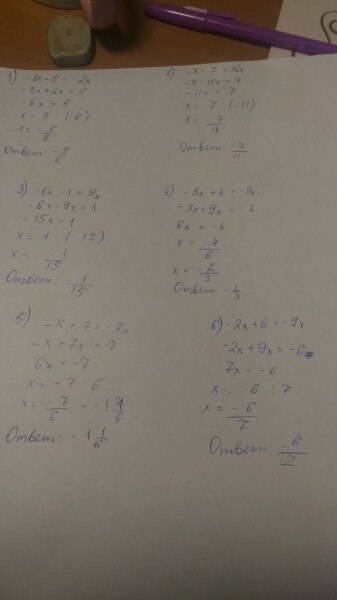 1) -8x-5 = -2x
-8x+2x = 5
-6x = 5
x = 5 : (-6)
x = -5/6
Ответ: -5/6
2) -x-7 = 10x
-x-10x = 7
-11x = 7
x = 7 : (-11)
x = -7/11
Ответ: -7/11
3) -6x-1 = 9x
-6x-9x = 1
-15x = 1
x = 1 : (-15)
x = -1/15
Ответ: -1/15
4) -3x+4 = -9x
-3x+9x = -4
6x = -4
x = -4/6
x = -2/3
Ответ: -2/3
5) -x+7 = -7x
-x+7x = -7
6x = -7
x = -7 : 6
x = -7/6 = -1 1/6
Ответ: -1 1/6
6) -2x+6 = -9x
-2x+9x = -6
7x = -6
x = -6 : 7
x = -6/7
Ответ: -6/2